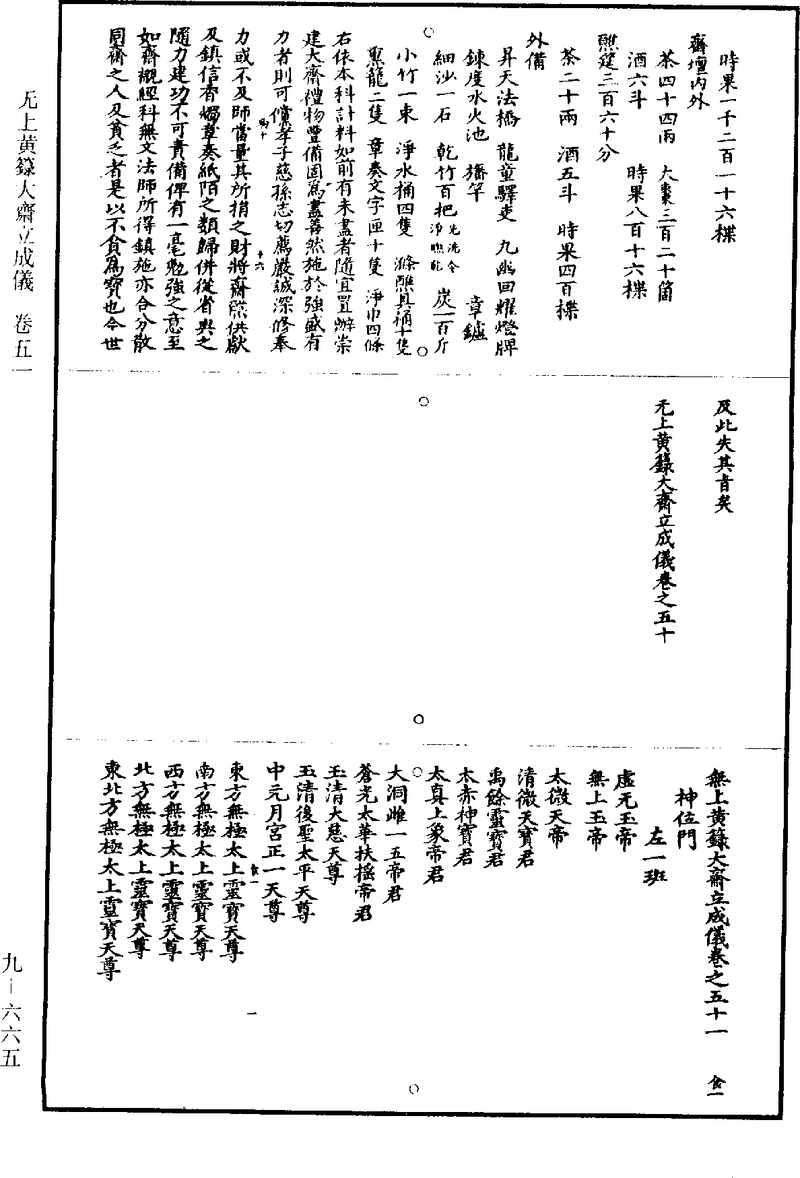 時果一千二百一十六楪
齋壇內外
茶四十四兩　大棗三百二十箇
酒六斗　時果八百十六楪
醮筵三百六十分
茶二十兩　酒五斗　時果四百楪
外備
昇天法橋　龍童驛吏　九幽回耀燈牌
鍊度水火池　旛竿　章鑪
細沙一石　乾竹百把先洗令淨曬乾　炭一百斤
小竹一束　淨水桶四隻　滌醮具桶十隻
熏籠二隻　章奏文字匣十隻　淨巾四條
右依本科計料如前有未盡者隨宜置辦崇
建大齋禮物豐備固為盡善然施於強盛有
力者則可儻孝子慈孫志切薦嚴誠深修奉
力或不及師當量其所捐之財將齋醮供獻
及鎮信香燭章奏紙陌之類歸併從省與之
隨力建功不可責備俾有一毫勉強之意至
如齋襯經科無文法師所得鎮施亦合分散
同齋之人及貧乏者是以不貪為寶也今世
及此失其旨矣
无上黃籙大齋立成儀卷之五十
無上黃籙大齋立成儀卷之五十一　食一
神位門
左一班
虛无玉帝
無上玉帝
太微天帝
清微天寶君
禹餘靈寶君
太赤神寶君
太真上象帝君
大洞雌一五帝君
蒼光太華扶搖帝君
玉清大慈天尊
玉清後聖太平天尊
中元月宮正一天尊
東方無極太上靈寶天尊
南方無極太上靈寶天尊
西方無極太上靈寶天尊
北方無極太上靈寶天尊
東北方無極太上靈寶天尊
一
无上黃籙大齋立成儀　卷五一
九－六六五